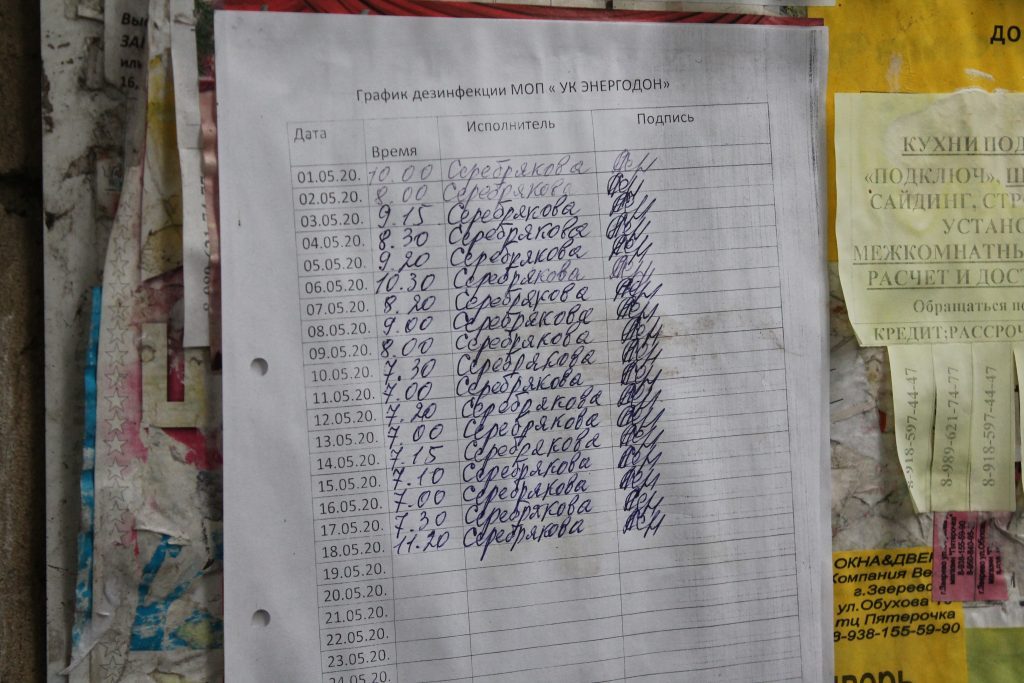 График дезинфекции МОП « УК ЭНЕРГОДОН»
Дата Время Исполнитель Подпись
01.05.20. 10.00 Серебрякова
02.05.20. 8.00 Серебрякова
03.05.20. 9.15 Серебрякова
04.05.20. 8.30 Серебрякова
05.05.20. 9.20 Серебрякова
06.05.20. 10.30 Серебрякова
07.05.20. 8.20 Серебрякова
08.05.20. 9.00 Серебрякова
09.05.20. 8.00 Серебрякова
10.05.20. 7.30 Серебрякова
11.05.20. 7.00 Серебрякова
12.05.20. 7.20 Серебрякова
13.05.20. 7.00 Серебрякова
14.05.20. 7.15 Серебрякова
15.05.20. 7.10 Серебрякова
16.05.20. 7.00 Серебрякова
17.05.20. 7.30 Серебрякова
18.05.20. 11.20 Серебрякова
19.05.20.
20.05.20.
21.05.20.
22.05.20.
23.05.20.
24.05.20.
ДО
КУХНИ ПОД
«ПОДКЛЮЧ».
САЙДИНГ, СТР
УСТАНО
МЕЖКОМНАТНЫ
РАСЧЕТ И ДОСТ
Обращаться по
КРЕДИТ;РАССРОЧ
8-918-597-44-47
8-989-621-74-77
8-918-597-44-47
ОКНА&ДВЕР
Компания Ве
г.Зверево
ул.Обухова
тц Пятерочка
8-938-155-59-90